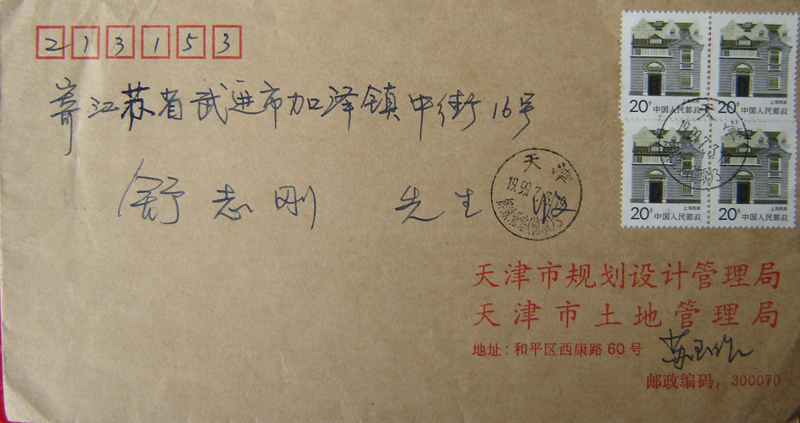 213153
寄江苏省武进市加泽镇中街16号
舒志刚 先生 收
20分 中国人民邮政
上海民居
20分 中国人民邮政
上海民居
20分 中国人民邮政
上海民居
20分 中国人民邮政
上海民居
天津
1999.7.3
天津
1999.7.3
天津市规划设计管理局
天津市土地管理局
地址：和平区西康路60号
邮政编码：300070